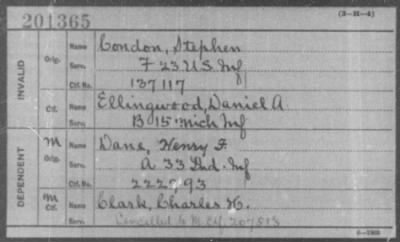 201365
(3—21—4)
INVALID
Orig.
Name Condon, Stephen
Serv. F 23 U.S. Inf
Ctf. No. 137117
Ctf.
Name Ellingwood, Daniel A
Serv. B 15 Mich Inf
DEPENDENT
M
Orig.
Name Dane, Henry F.
Serv. A 33 Ind. Inf
Ctf. No. 222793
M
Ctf.
Name Clark, Charles H.
Serv. Cancelled & M. Ctf. 207513